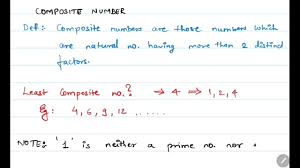 COMPOSITE NUMBER
Def: Composite numbers are those numbers which
are natural no. having more than 2 distinct
factors.
Least composite no.? → 4 ⇒ 1, 2, 4
Eg: 4, 6, 9, 12 .....
NOTE: '1' is neither a prime no. nor